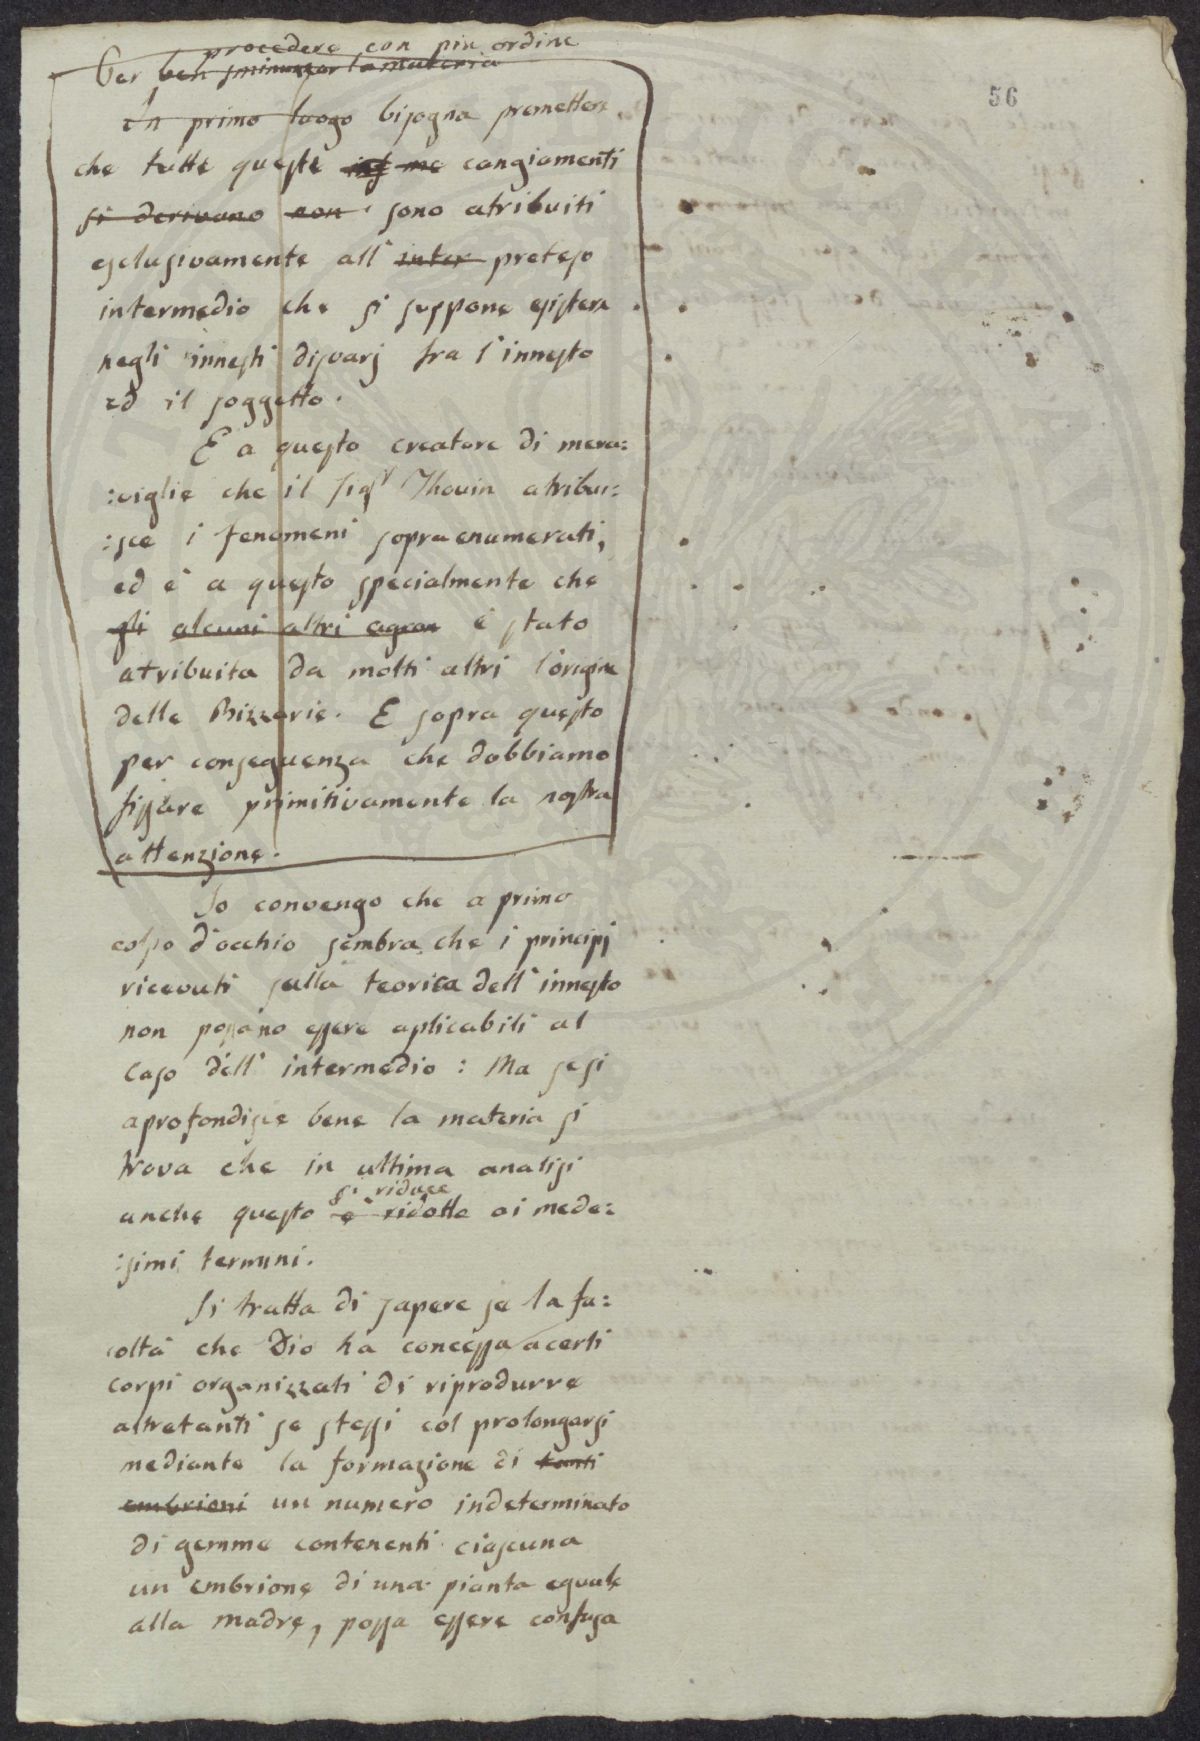 procedere con piu ordine
Per ben sminuzzar la materia
56
In primo luogo bisogna premettere
che tutte queste me cangiamenti
si derivano non sono atribuiti
esclusivamente all' inter preteso
intermedio che si suppone esistere
negli innesti disvarj fra l'innesto
ed il soggetto.
E a questo creatore di mera:
:viglie che il Sigr Thouin atribui:
:sce i fenomeni sopraenumerati,
ed è a questo specialmente che
gli alcuni altri agron è stato
atribuita da molti altri l'origine
delle Bizzarie. E sopra questo
per conseguenza che dobbiamo
fissare primitivamente la nostra
attenzione.
Io convengo che a primo
colpo d'occhio sembra che i principj
ricevuti sulla teorica dell'innesto
non possano essere aplicabili al
caso dell'intermedio: Ma se si
aprofondisce bene la materia si
trova che in ultima analisi
si riduce
anche questo è ridotto ai mede:
:simi termini.
Si tratta di sapere se la fa:
coltà che Dio ha concessa a certi
corpi organizzati di riprodurre
altretanti se stessi col prolongarsi
mediante la formazione di tanti
embrioni un numero indeterminato
di gemme contenenti ciascuna
un embrione di una pianta eguale
alla madre, possa essere confusa